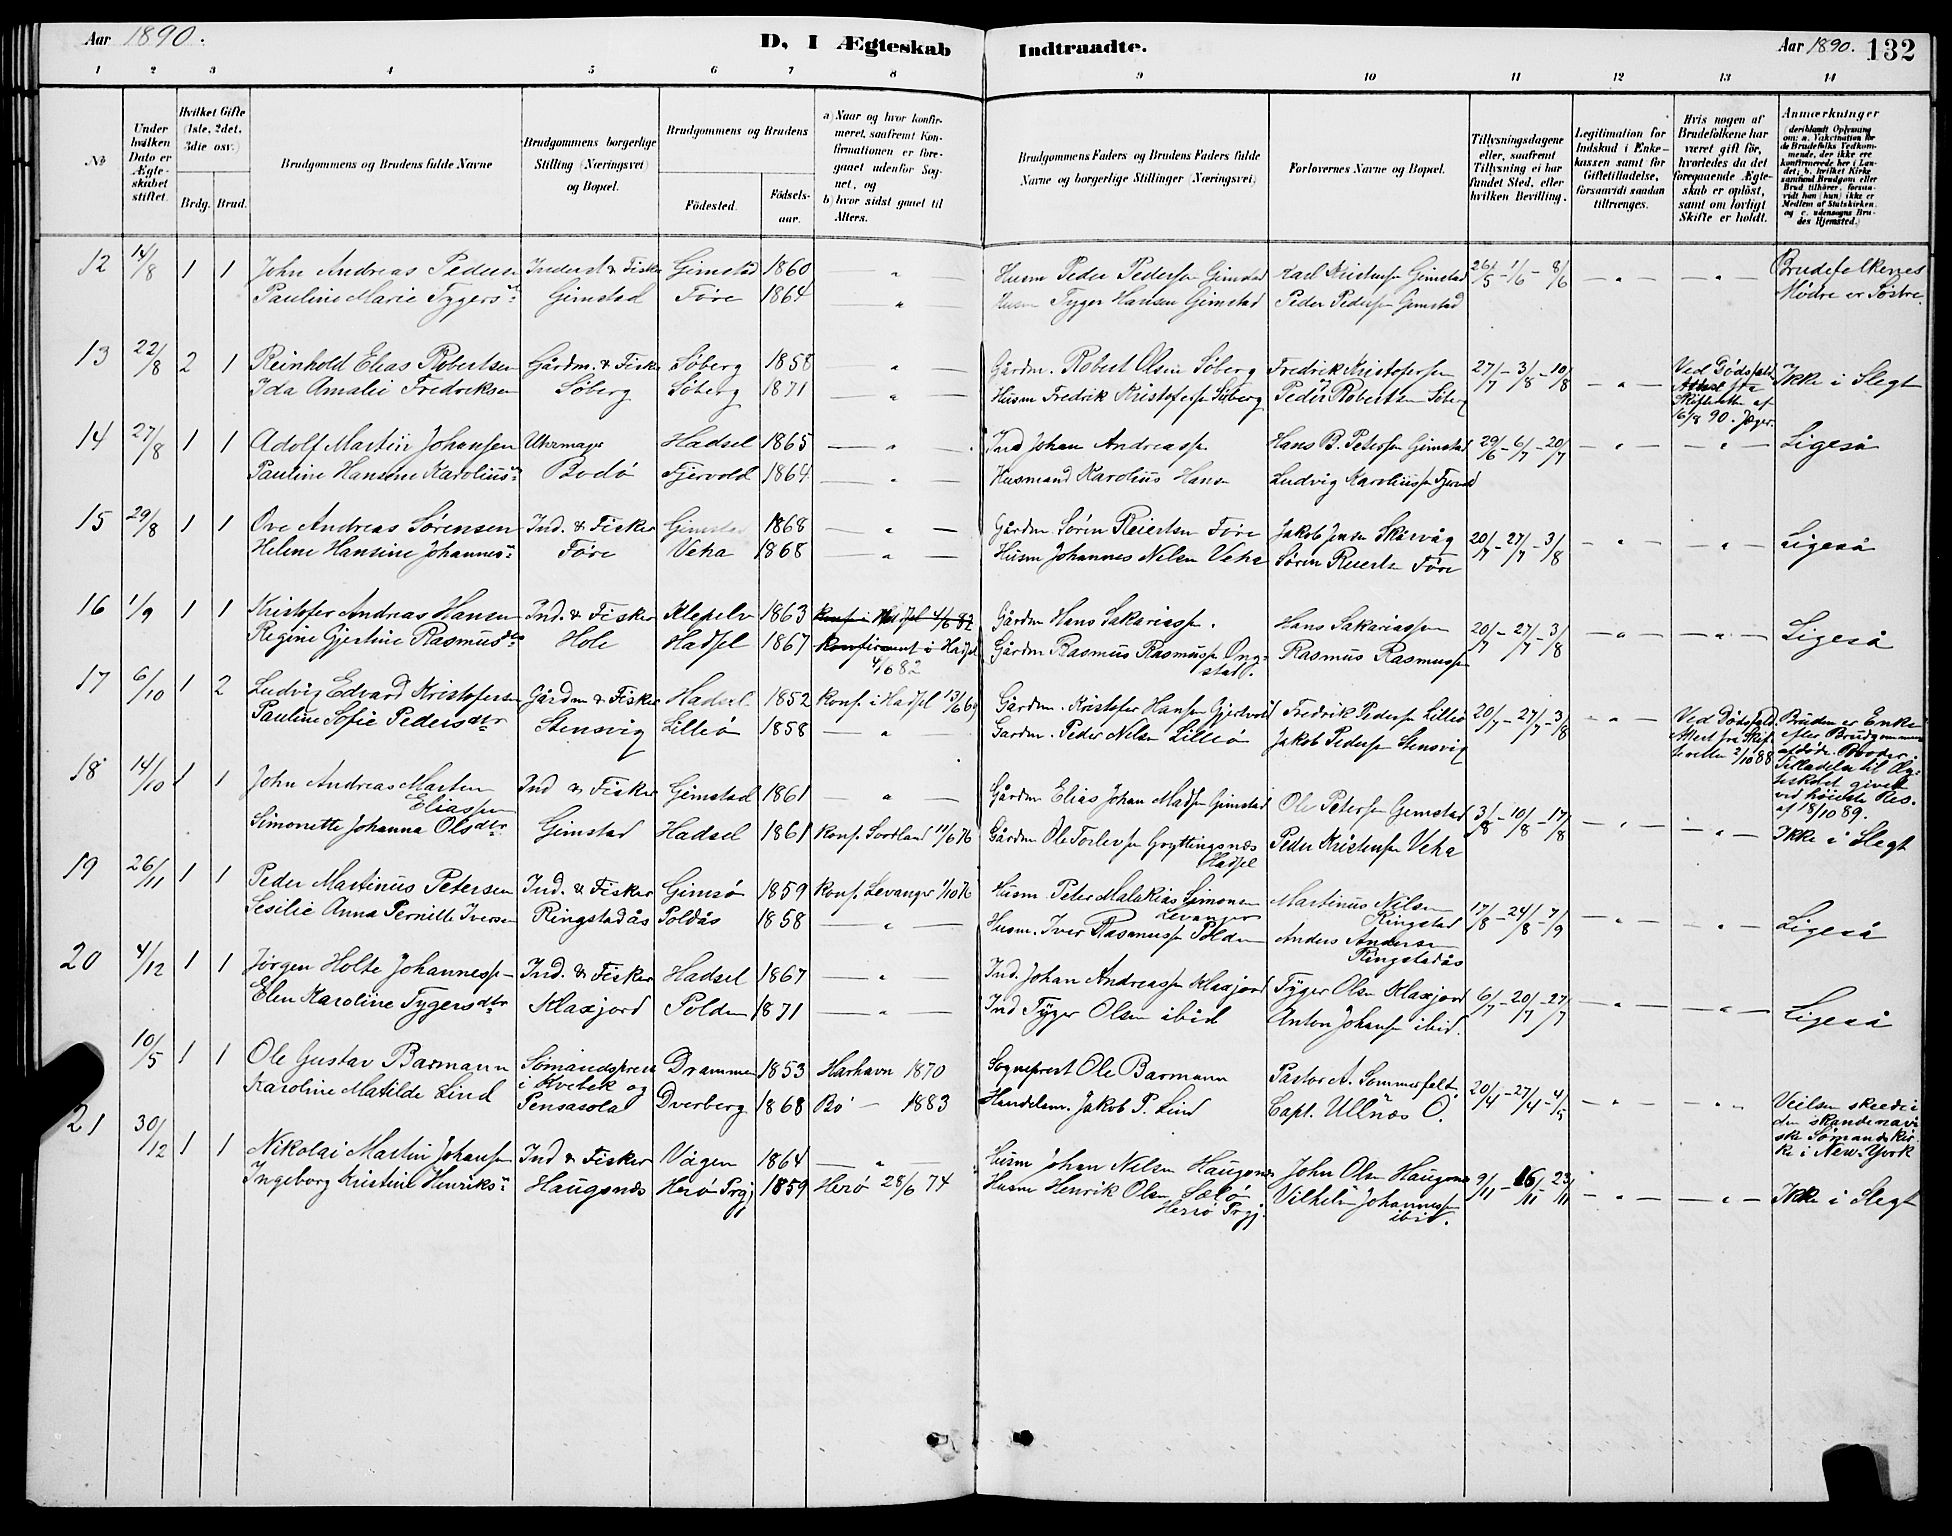 Aar 1890.
D, I Ægteskab Indtraadte.
Aar 1890. 132
1 2 3 4 5 6 7 8 9 10 11 12 13 14
No
Under hvilken Dato er Ægteskabet stiftet.
Hvilket Gifte (1ste, 2det, 3die osv.)
Brdg. Brud.
Brudgommens og Brudens fulde Navne
Brudgommens borgerlige Stilling (Næringsvei) og Bopæl.
Brudgommens og Brudens
Fødested. Fødselsaar.
a) Naar og hvor konfirmeret, saafremt Konfirmationen er foregaaet udenfor Sognet, og
b) hvor sidst gaaet til Alters.
Brudgommens Faders og Brudens Faders fulde Navne og borgerlige Stillinger (Næringsvei)
Forlovernes Navne og Bopæl.
Tillysningsdagene eller, saafremt Tillysning ei har fundet Sted, efter hvilken Bevilling.
Legitimation for Indskud i Enkekassen samt for Giftetilladelse, forsaavidt saadan tiltrænges.
Hvis nogen af Brudefolkene har været gift før, hvorledes da det foregaaende Ægteskab er opløst, samt om lovligt Skifte er holdt.
Anmærkninger (deriblandt Oplysning om: a. Vakcination for de Brudefolks Vedkommende, der ikke ere konfirmerede her i Landet; b. hvilket Kirkesamfund Brudgom eller Brud tilhører, forsaavidt han (hun) ikke er Medlem af Statskirken, og c. udensogns Brudes Hjemsted.)
12 14/8 1 1 John Andreas Peders Inderst & Fisker Gimstad 1860 — " — Husm Peder Pedersen Gimstad Karl Kristensen Gimstad 26/5 - 1/6 - 8/6 — " — — " — Brudefolkenes
Pauline Marie Tygersdr Gimstad Føre 1864 — " — Husm Tyger Hansen Gimstad Peder Pedersen Gimstad Mødre er Søstre.
13 22/8 2 1 Reinhold Elias Robertsen Gårdm. & Fisker Søberg 1858 — " — Gårdm. Robert Olsen Søberg Fredrik Kristofersen 27/7 - 3/8 - 10/8 — " — Ved Dødsfald Ikke i Slegt
Ida Amalie Fredriksen Søberg Søberg 1871 — " — Husm Fredrik Kristofersen Søberg Peder Robertsen Søberg Attest fra
Skifteretten af
6/8 90. Jeger.
14 27/8 1 1 Adolf Martin Johansen Uhrmager Hadsel 1865 — " — Ind Johan Andreassen Hans B. Petersen Gimstad 29/6 - 6/7 - 20/7 — " — — " — Ligeså
Pauline Hansine Karoliusdr Bodø Fjervold 1864 — " — Husmand Karolius Hans Ludvig Karoliussen Fjervold
15 29/8 1 1 Ove Andreas Sørensen Ind. & Fisker Gimstad 1868 — " — Gårdm Søren Reiertsen Føre Jakob Jensen Skårvåg 20/7 - 27/7 - 3/8 — " — — " — Ligeså
Helene Hansine Johannesdr Føre Veha 1868 — " — Husm Johannes Nilsen Veha Søren Reiertsen Føre
16 1/9 1 1 Kristofer Andreas Hansen Ind. & Fisker Klepelv 1863 Konf. i Hadsel 4/6 82 Gårdm Hans Sakariassen. Hans Sakariassen 20/7 - 27/7 - 3/8 — " — — " — Ligeså
Regine Gjertine Rasmusdtr Hole Hadsel 1867 Konfirmert i Hadsel 4/6 82 Gårdm Rasmus Rasmussen Ongstad. Rasmus Rasmussen
17 6/10 1 2 Ludvig Edvard Kristofersen Gårdm & Fisker Hadsel 1852 Konf. i Hadsel 13/6 69 Gårdm. Kristofer Hansen Gjertvold Fredrik Pedersen Lilleø 20/7 - 27/7 - 3/8 — " — Ved Dødsfald. Bruden er Enke
Pauline Sofie Pedersdtr Stensvig Lilleø 1858 — " — Gårdm. Peder Nilsen Lilleø Jakob Pedersen Stensvig Attest fra Skifteretten 2/10 88 efter Brudgommens
afdøde Broder.
Tilladelse til Ægteskabet givet
ved høieste Res.
af 18/10 89.
18 14/10 1 1 John Andreas Marten Eliassen Ind & Fisker Gimstad 1861 — " — Gårdm Elias Johan Madsen Gimstad Ole Petersen Gimstad 3/8 - 10/8 - 17/8 — " — — " — Ikke i Slegt
Simonette Johanna Olsdtr Gimstad Hadsel 1861 Konf. Sortland 11/6 76 Gårdm Ole Torlevsen Gryttingsnæs Hadsel Peder Kristensen Veha
19 26/11 1 1 Peder Martinus Petersen Ind. & Fisker Gimsø 1859 Konf. Levanger 1/10 76 Husm Peter Malakias Simonsen Levanger Martinus Nilsen Ringstad 17/8 - 24/8 - 7/9 — " — — " — Ligeså
Sesilie Anna Pernille Iversen Ringstadås Poldås 1858 — " — Husm. Iver Rasmussen Polden Anders Andersen Ringstadås
20 4/12 1 1 Jørgen Holte Johannessen Ind. & Fisker Hadsel 1867 — " — Ind. Johan Andreassen Klaxjord Tyger Olsen Klaxjord 6/7 - 20/7 - 27/7 — " — — " — Ligeså
Elen Karoline Tygersdtr Klaxjord Polden 1871 — " — Ind Tyger Olsen ibid Anton Johansen ibid.
10/5 1 1 Ole Gustav Barmann Sømandsprest i Kvebek og Drammen 1853 Harhavn 1870 Sogneprest Ole Barmann Pastor A. Sommerfelt 20/4 - 27/4 - 4/5 — " — — " — Vielsen skeede i
Karoline Matilde Lind Pensacola Dverberg 1868 Bø — 1883 Handelsm. Jakob P. Lind Capt. Ullnæs O. den skandinaviske Sømandskirke i New-York
21 30/12 1 1 Nikolai Martin Johansen Ind & Fisker Vågen 1864 — " — Husm Johan Nilsen Haugsnæs John Olsen Haugsnæs 9/11 - 16/11 - 23/11 — " — — " — Ikke i Slegt
Ingeborg Kristine Henriksdr Haugsnæs Herø Prgj 1859 Herø 28/6 74 Husm Henrik Olsen Sælø Herø Prgj. Vilhelm Johannessen ibid.